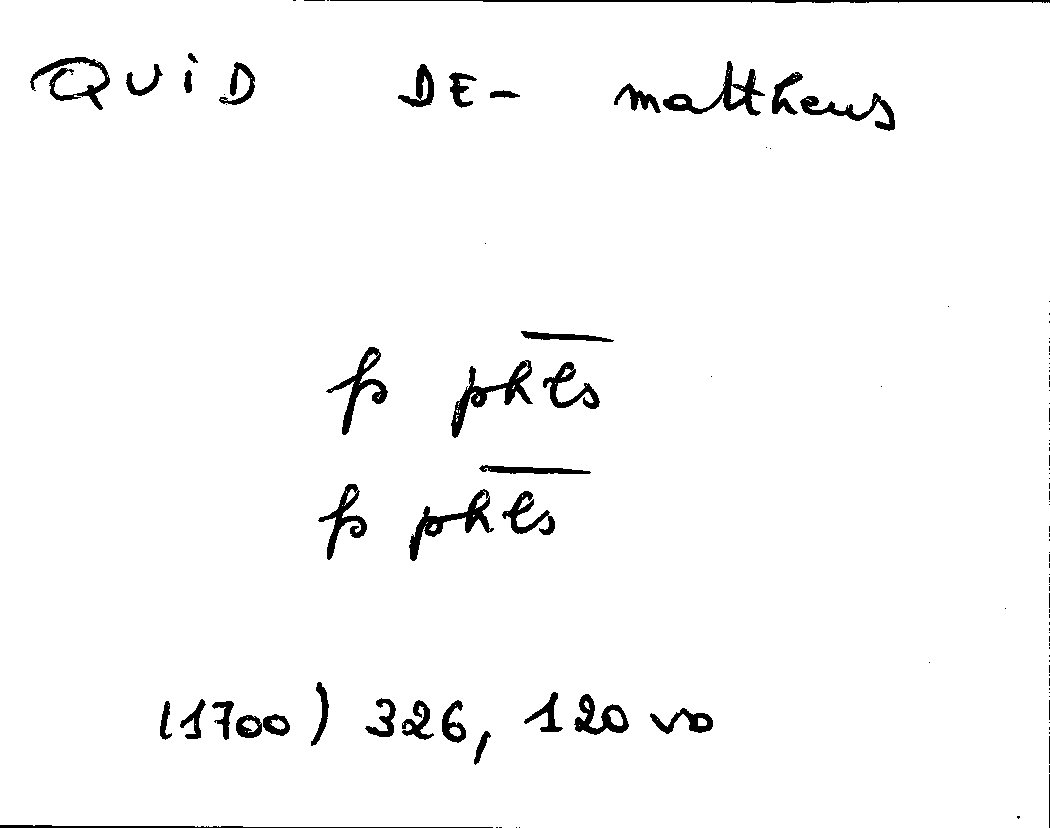 QUiD DE- mattheus
p phls
p phls
(1700) 326, 120 vo